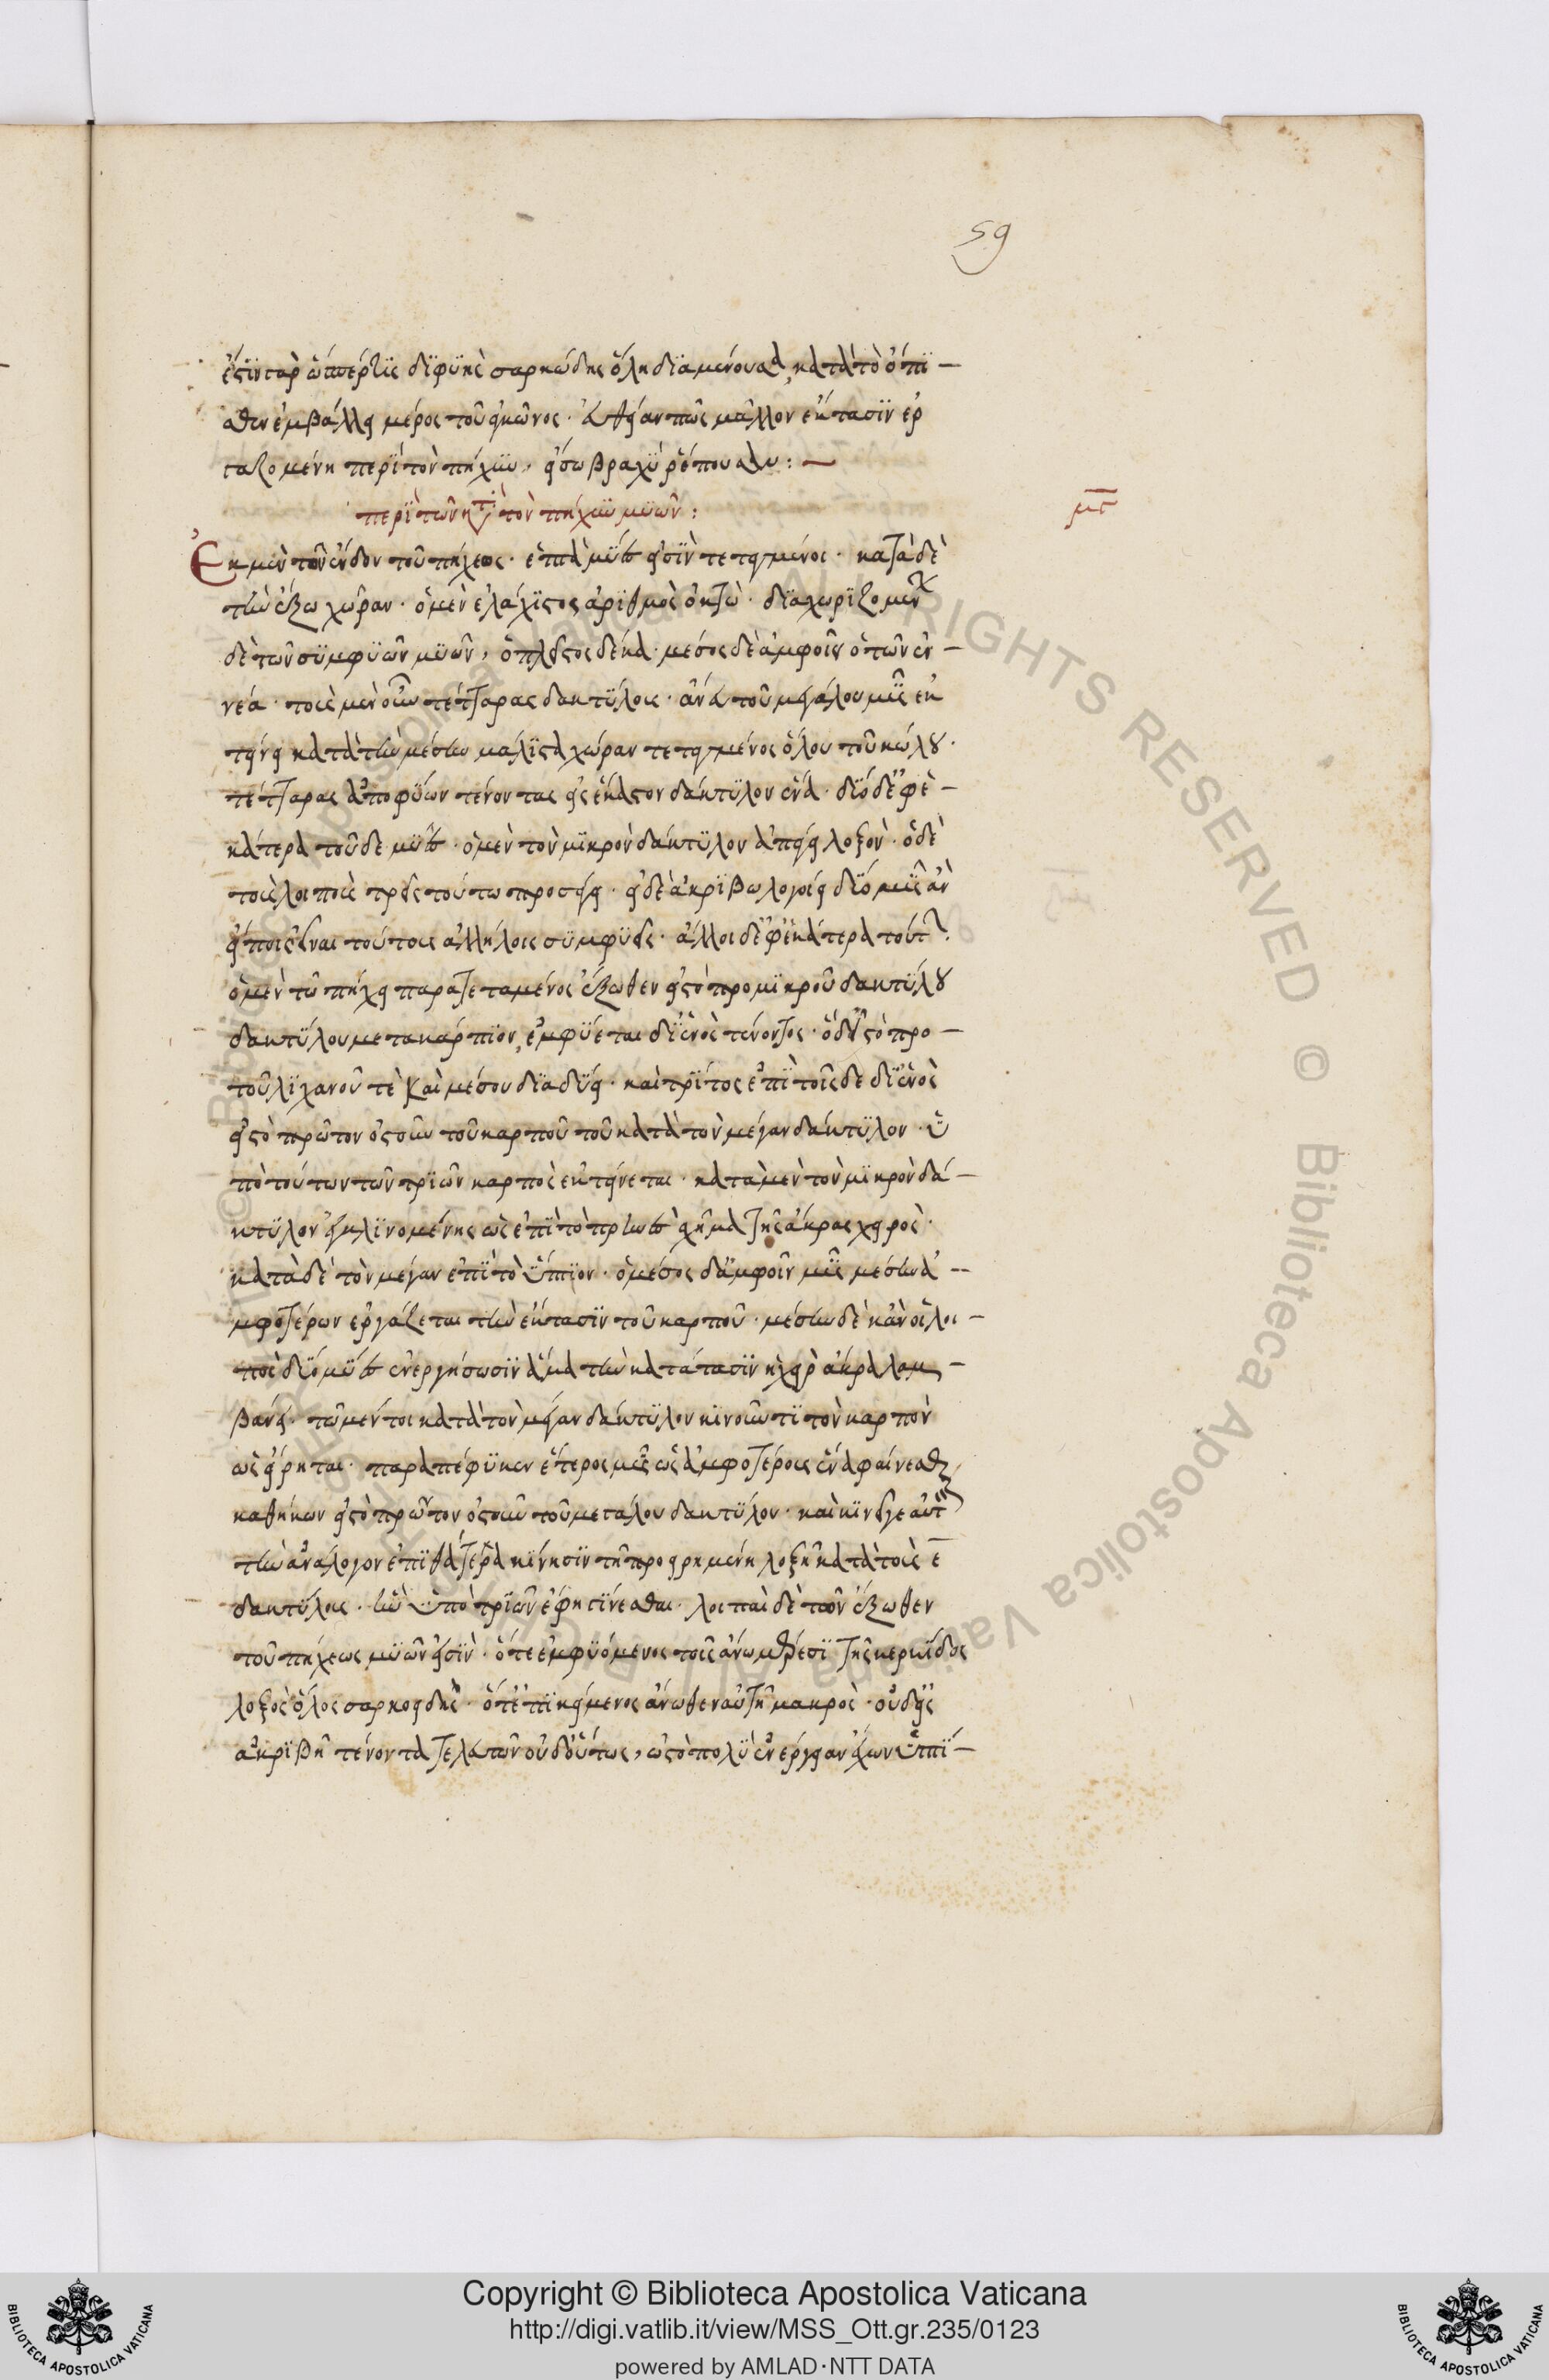 59
ἐστὶν γὰρ ὥσπερ τίς διφυὴς σαρκώδης ὅλη διαμένουσα, κατὰ τὸ ὀπί-
σθεν ἐμβάλλει μέρος τοῦ ἀγκῶνος. καὶ εἴη ἄν πως μᾶλλον ἔκτασιν ἐρ
γαζομένη περὶ τὸν πῆχυν, εἴσω βραχὺ ῥέπουσαν:
περὶ τῶν κατὰ τὸν πῆχυν μυῶν:
μς
Ἐκ μὲν τῶν ἔνδον τοῦ πήχεως. ἑπτὰ μύες εἰσὶν τεταγμένοι. κατὰ δὲ
τὴν ἔξω χώραν. ὁ μὲν ἐλάχιστος ἀριθμὸς ὀκτώ. διαχωριζομένων
δὲ τῶν συμφυῶν μυῶν, ὁ πλεῖστος δέκα. μέσος δὲ ἀμφοῖν ὁ τῶν ἐν-
νέα. τοὺς μὲν οὖν τέτταρας δακτύλους. ἀνὰ τοῦ μεγάλου μῦς ἐκ
τείνει κατὰ τὴν μέσην μάλιστα χώραν τεταγμένος ὅλου τοῦ κώλου.
τέτταρας ἀποφύων τένοντας εἰς ἕκαστον δάκτυλον ἕνα. δύο δ' ἐφ' ἑ-
κάτερα τοῦδε μύες. ὁ μὲν τὸν μικρὸν δάκτυλον ἀπάγει λοξόν. ὁ δὲ
τοὺς λοιποὺς τρεῖς τούτω προσάγει. εἰ δὲ ἀκριβολογοίη δύο μῦς ἂν
εἴποις εἶναι τούτους ἀλλήλοις συμφυεῖς. ἄλλοι δ' ἐφ' ἑκάτερα τούτων
ὁ μὲν τῶ πήχει παρατεταμένος ἔξωθεν εἰς τὸ πρὸ μικροῦ δακτύλου
δακτύλου μετακάρπιον, ἐμφύεται δι' ἑνὸς τένοντος. ὁ δ' εἰς τὸ πρὸ-
τοῦ λιχανοῦ τὲ καὶ μέσου διαδύει. καὶ τρίτος ἐπὶ τοῖσδε δι' ἑνὸς
εἰς τὸ πρῶτον ὀστοῦν τοῦ καρποῦ τοῦ κατὰ τὸν μέγαν δάκτυλον. ὑ
πὸ τούτων τῶν τριῶν καρπὸς ἐκτείνεται. κατὰ μὲν τὸν μικρὸν δά-
κτυλον ἐγκλινομένης ὡς ἐπὶ τὸ πρηνὲς σχῆμα τῆς ἄκρας χειρός.
κατὰ δὲ τὸν μέγαν ἐπὶ τὸ ὕπτιον. ὁ μέσος δ' ἀμφοῖν μῦς μέσην ἀ-
μφοτέρων ἐργάζεται τὴν ἔκτασιν τοῦ καρποῦ. μέσην δὲ κἂν οἱ λοι-
ποὶ δύο μύες ἐνεργήσωσιν ἅμα τὴν κατάτασιν ἡ χεὶρ ἄκρα λαμ-
βάνει. τῶ μέντοι κατὰ τὸν μέγαν δάκτυλον κινοῦντι τὸν καρπὸν
ὡς εἴρηται. παραπέφυκεν ἕτερος μῦς ὡς ἀμφοτέρους ἕνα φαίνεσθαι
καθήκων εἰς τὸ πρῶτον ὀστοῦν τοῦ μεγάλου δακτύλου. καὶ κινεῖ γε αὐτὸν
τὴν ἀνάλογον ἐπὶ θάτερα κίνησιν τῆ προειρημένη λοξῆ κατὰ τοὺς ε
δακτύλους. ἣν ὑπὸ τριῶν ἔφην γίνεσθαι. λοιποὶ δὲ τῶν ἔξωθεν
τοῦ πήχεως μυῶν εἰσὶν. ὅ τε ἐμφυόμενος τοῖς ἄνω μέρεσι τῆς κερκίδος
λοξὸς ὅλος σαρκοειδής. ὅ τ' ἐπικείμενος ἄνωθεν αὐτῆ μακρός. οὐδ' εἰς
ἀκριβῆ τένοντα τελευτῶν οὐδ' οὕτως, ὡς τὸ πολὺ ἐνέργειαν ἔχων ὑπτί-
Copyright © Biblioteca Apostolica Vaticana
http://digi.vatlib.it/view/MSS_Ott.gr.235/0123
powered by AMLAD·NTT DATA